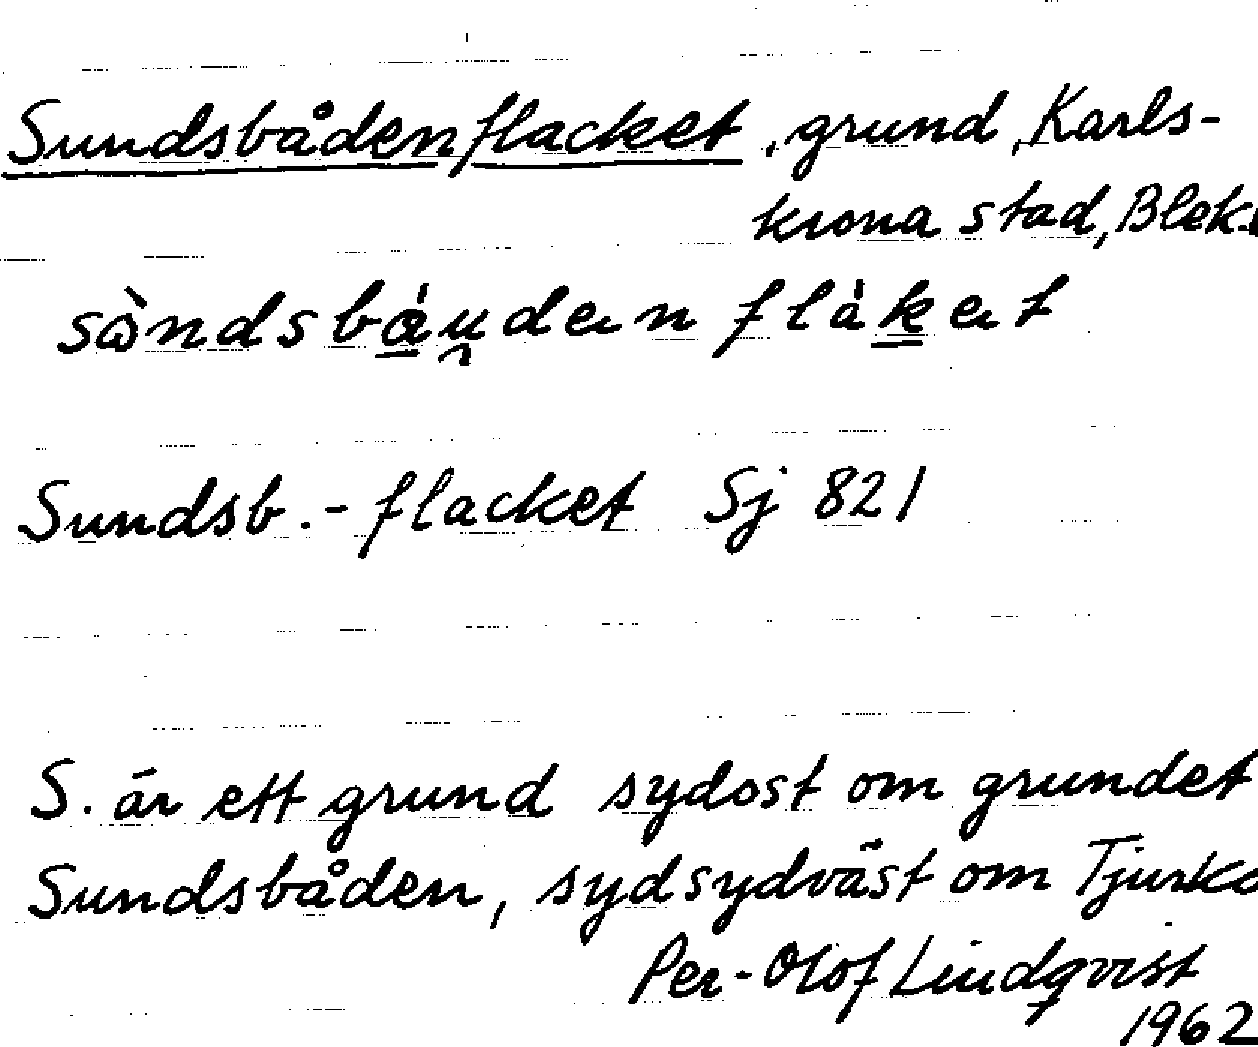 Sundsbådenflacket, grund, Karls-
krona stad, Blek.
Sundsb.-flacket Sj 821
S. är ett grund sydost om grundet
Sundsbåden, sydsydväst om Tjurkö
Per-Olof Lindqvist
1962